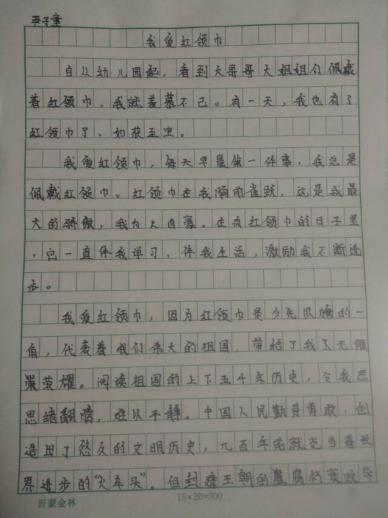 尹子童
我爱红领巾
自从幼儿园起，看到大哥哥大姐姐们佩戴
着红领巾，我就羡慕不已。有一天，我也有了
红领巾了，如获至宝。
我爱红领巾，每天早晨第一件事，我总是
佩戴红领巾。红领巾在我胸前雀跃，这是我最
大的骄傲，我为之自豪。在有红领巾的日子里
，它一直伴我学习，伴我生活，激励我不断进
步。
我爱红领巾，因为红领巾是少先队旗的一
角，代表着我们伟大的祖国，带给了我无限
荣耀。阅读祖国的上下五千年历史，令我思
思绪翻腾，难以平静。中国人民勤劳勇敢，创
造出了悠久的文明历史，几百年前就充当着世
界进步的“火车头”。但封建王朝的腐败导
沂蒙金林
15×20=300